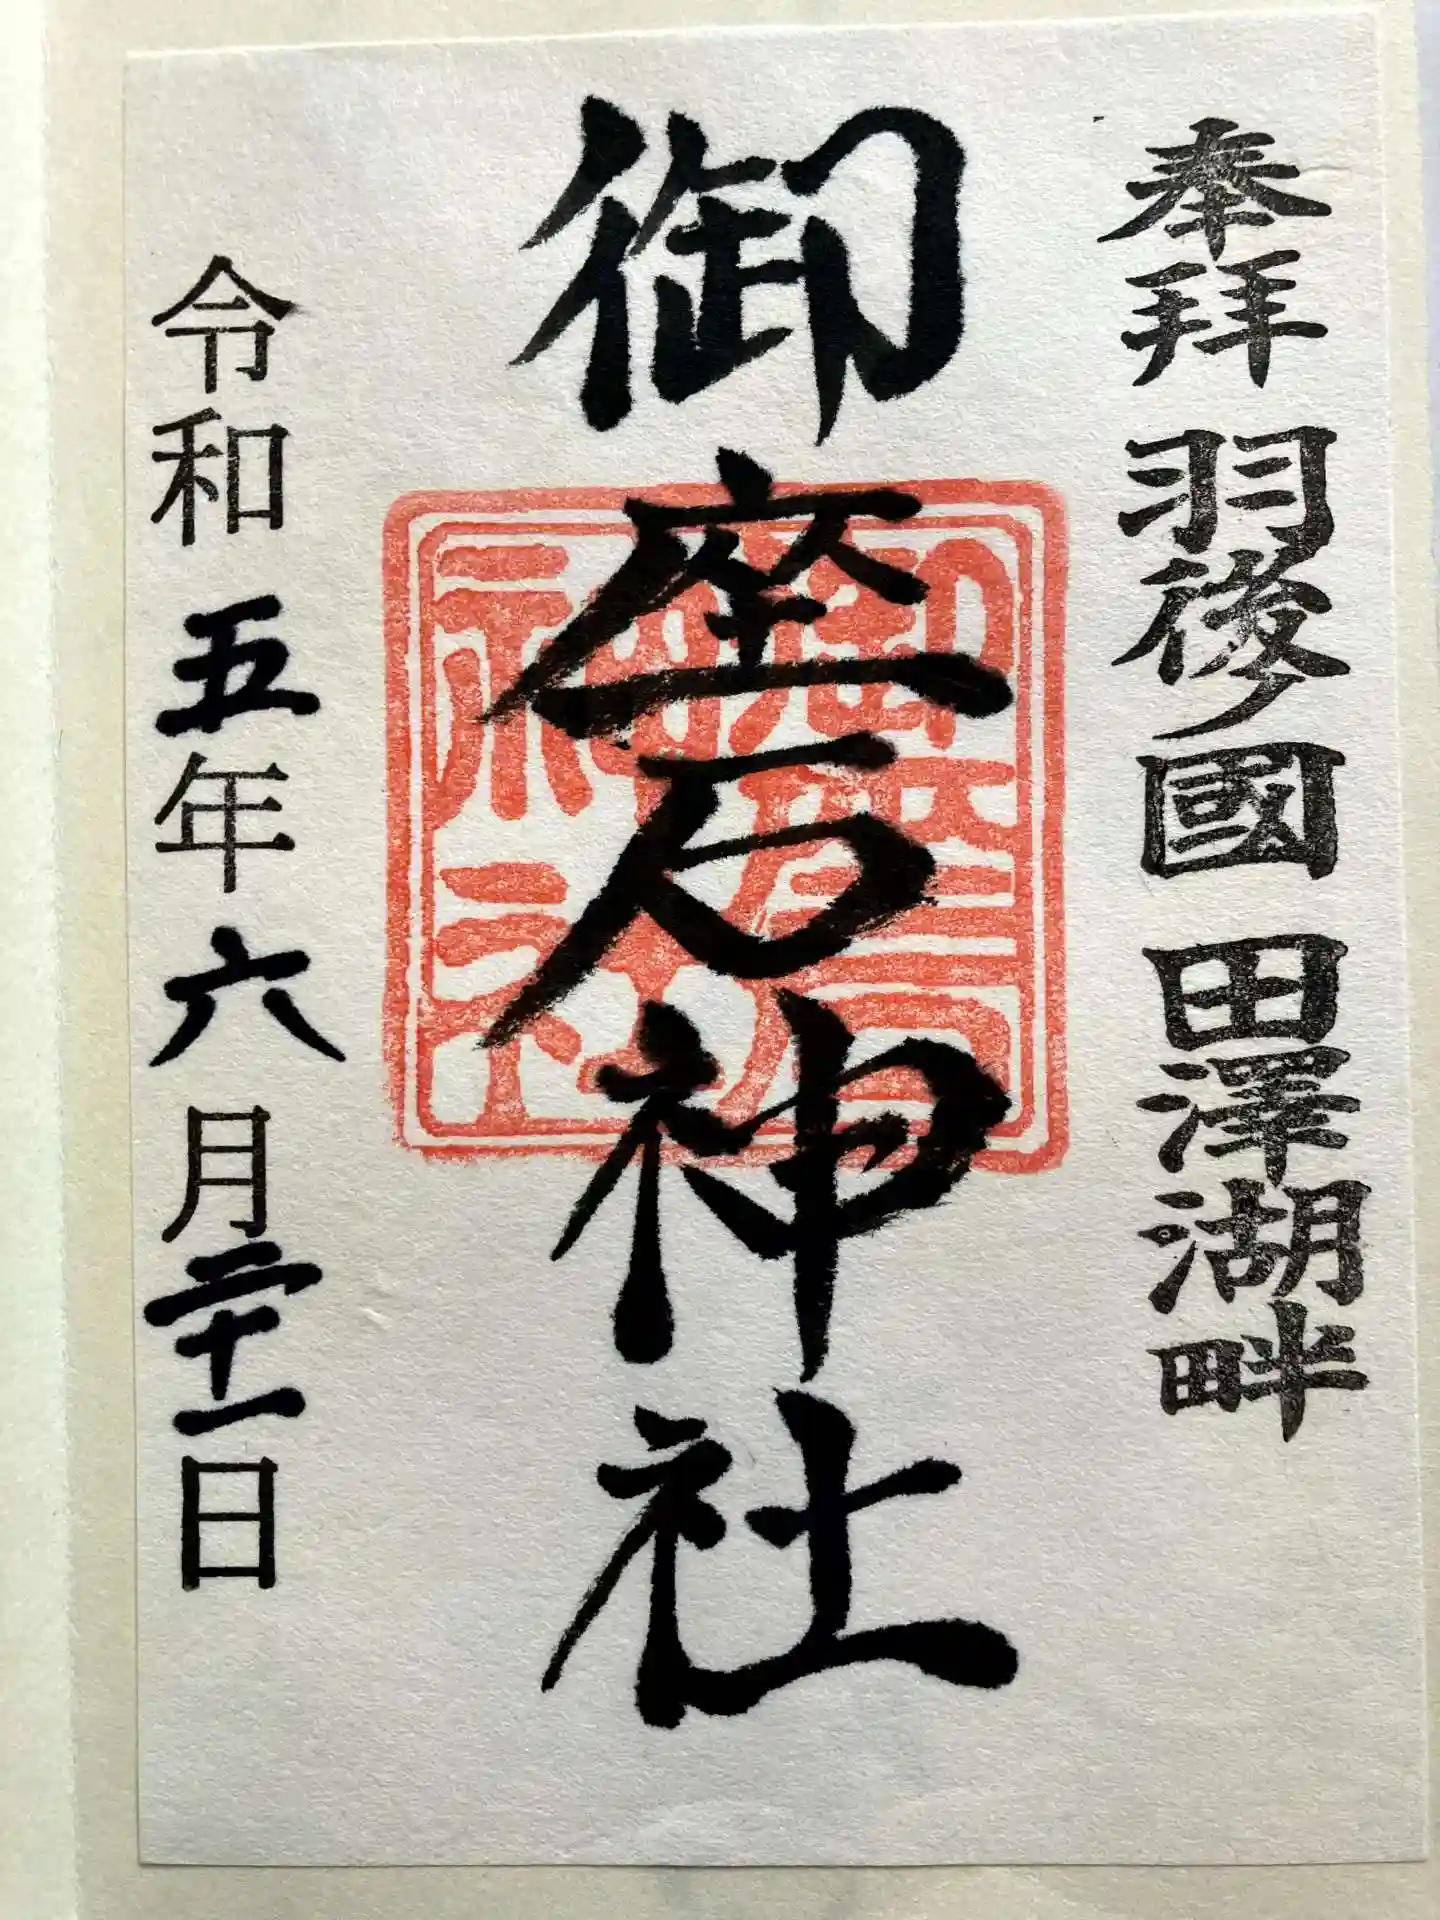 奉拝 羽後ノ國 田澤湖畔
御座石神社
御座石
神社
令和五年六月二十一日